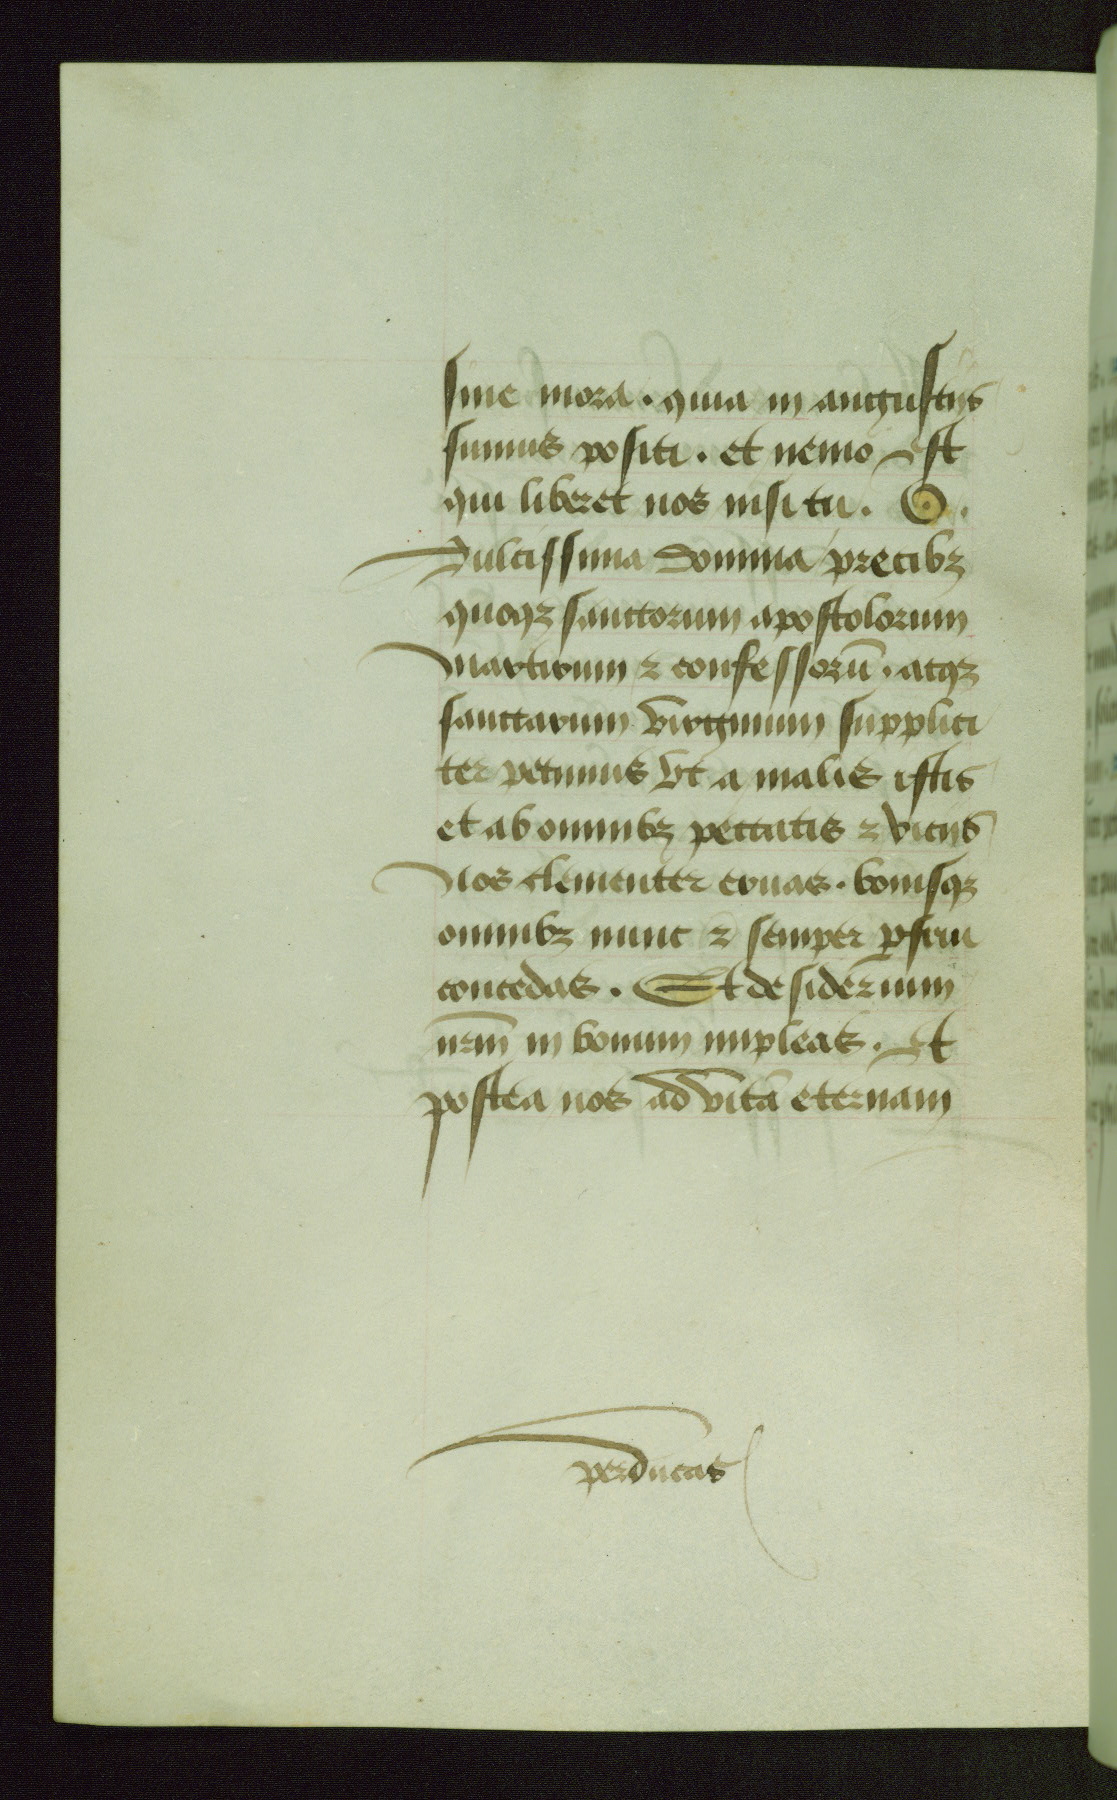 sine mora. quia in angustijs
sumus positi. et nemo est
qui liberet nos nisi tu. O.
Dulcissima domina precibꝫ
quoqꝫ sanctorum apostolorum
Martirum ⁊ confessorū. atqꝫ
sanctarum virginum supplici
ter petimus vt a malis istis
et ab omnibꝫ peccatis ⁊ vicijs
Nos clementer eruas. bonisqꝫ
omnibꝫ nunc ⁊ semper ꝑfrui
concedas. Et desiderium
nr̄m in bonum impleas. Et
postea nos ad vitā eternam
perducas